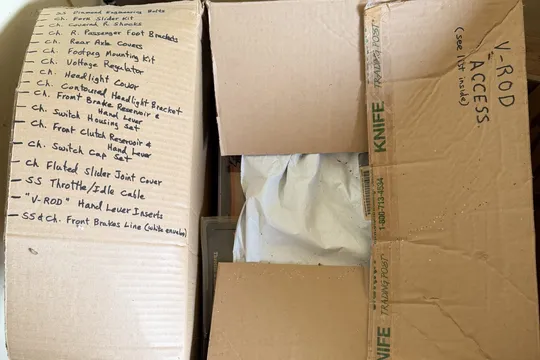 SS Diamond Engineering Bolts
— Ch. Fork Slider Kit
— Ch. Covered R. Shocks
— Ch. R. Passenger Foot Brackets
— Ch. Rear Axle Covers
— Ch. Footpeg Mounting Kit
— Ch. Voltage Regulator
— Ch. Headlight Cover
— Ch. Contoured Headlight Bracket
— Ch. Front Brake Reservoir &
Hand Lever
— Ch. Switch Housing Set
— Ch. Front Clutch Reservoir &
Hand Lever
— Ch. Switch Cap Set
— Ch. Fluted Slider Joint Cover
— SS Throttle/Idle Cable
— "V-ROD" Hand Lever Inserts
— SS & Ch. Front Brakes Line (white envelope)
V-ROD
ACCESS.
(see list inside)
TRADING POST
KNIFE
1-800-713-4534
TRADING POST
NIFE